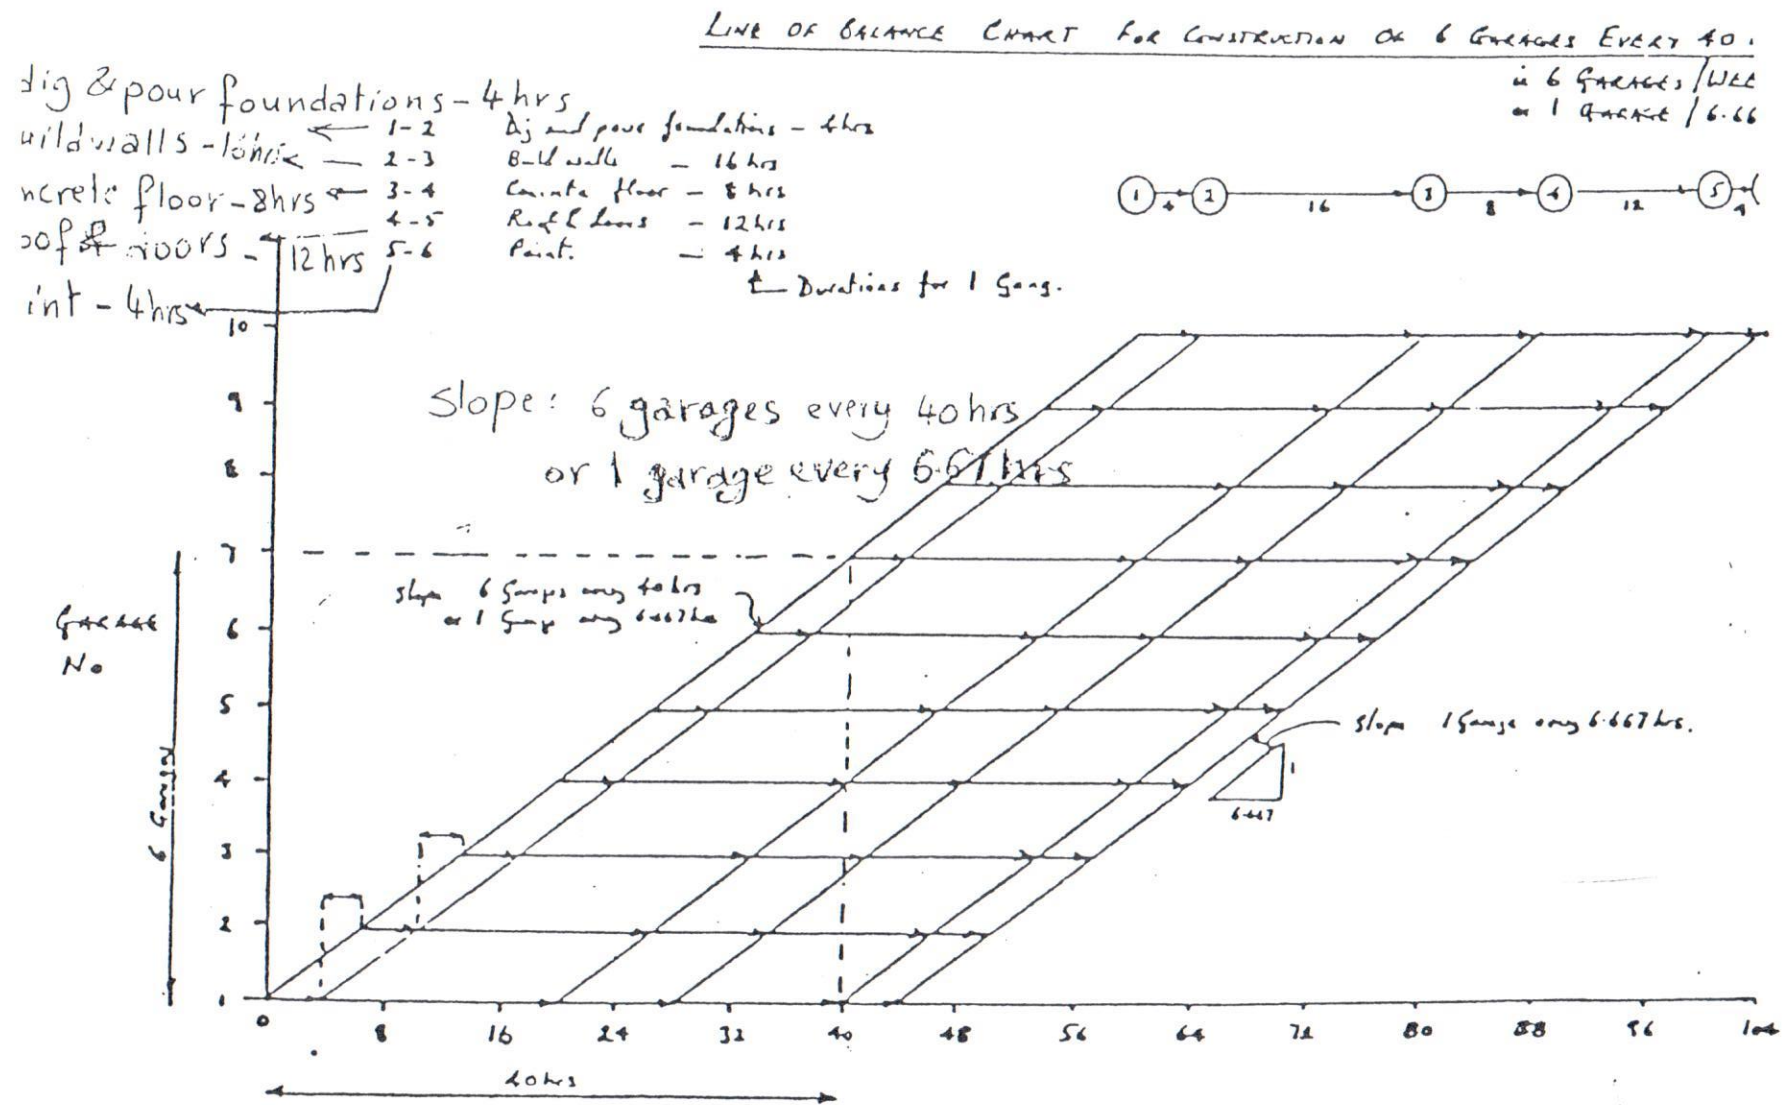 LINE OF BALANCE CHART FOR CONSTRUCTION OF 6 GARAGES EVERY 40.
6 GARAGES / WEE
1 GARAGE / 6.66
dig & pour foundations - 4 hrs
uild walls - 16hrs
ncrete floor - 8hrs
oof & doors - 12 hrs
int - 4hrs
1-2 Dig and pour foundations - 4hrs
2-3 Build walls - 16 hrs
3-4 Concrete floor - 8 hrs
4-5 Roof & doors - 12 hrs
5-6 Paint. - 4 hrs
Durations for 1 Gang.
1 2 3 4 5
4 16 8 12 4
Slope: 6 garages every 40 hrs
or 1 garage every 6.67 hrs
slope 6 Garages every 40 hrs
or 1 Garage every 6.667 hrs
slope 1 Garage every 6.667 hrs.
1
6.667
GARAGE
No
6 Garages
10
9
8
7
6
5
4
3
2
1
0 8 16 24 32 40 48 56 64 72 80 88 96 104
40 hrs